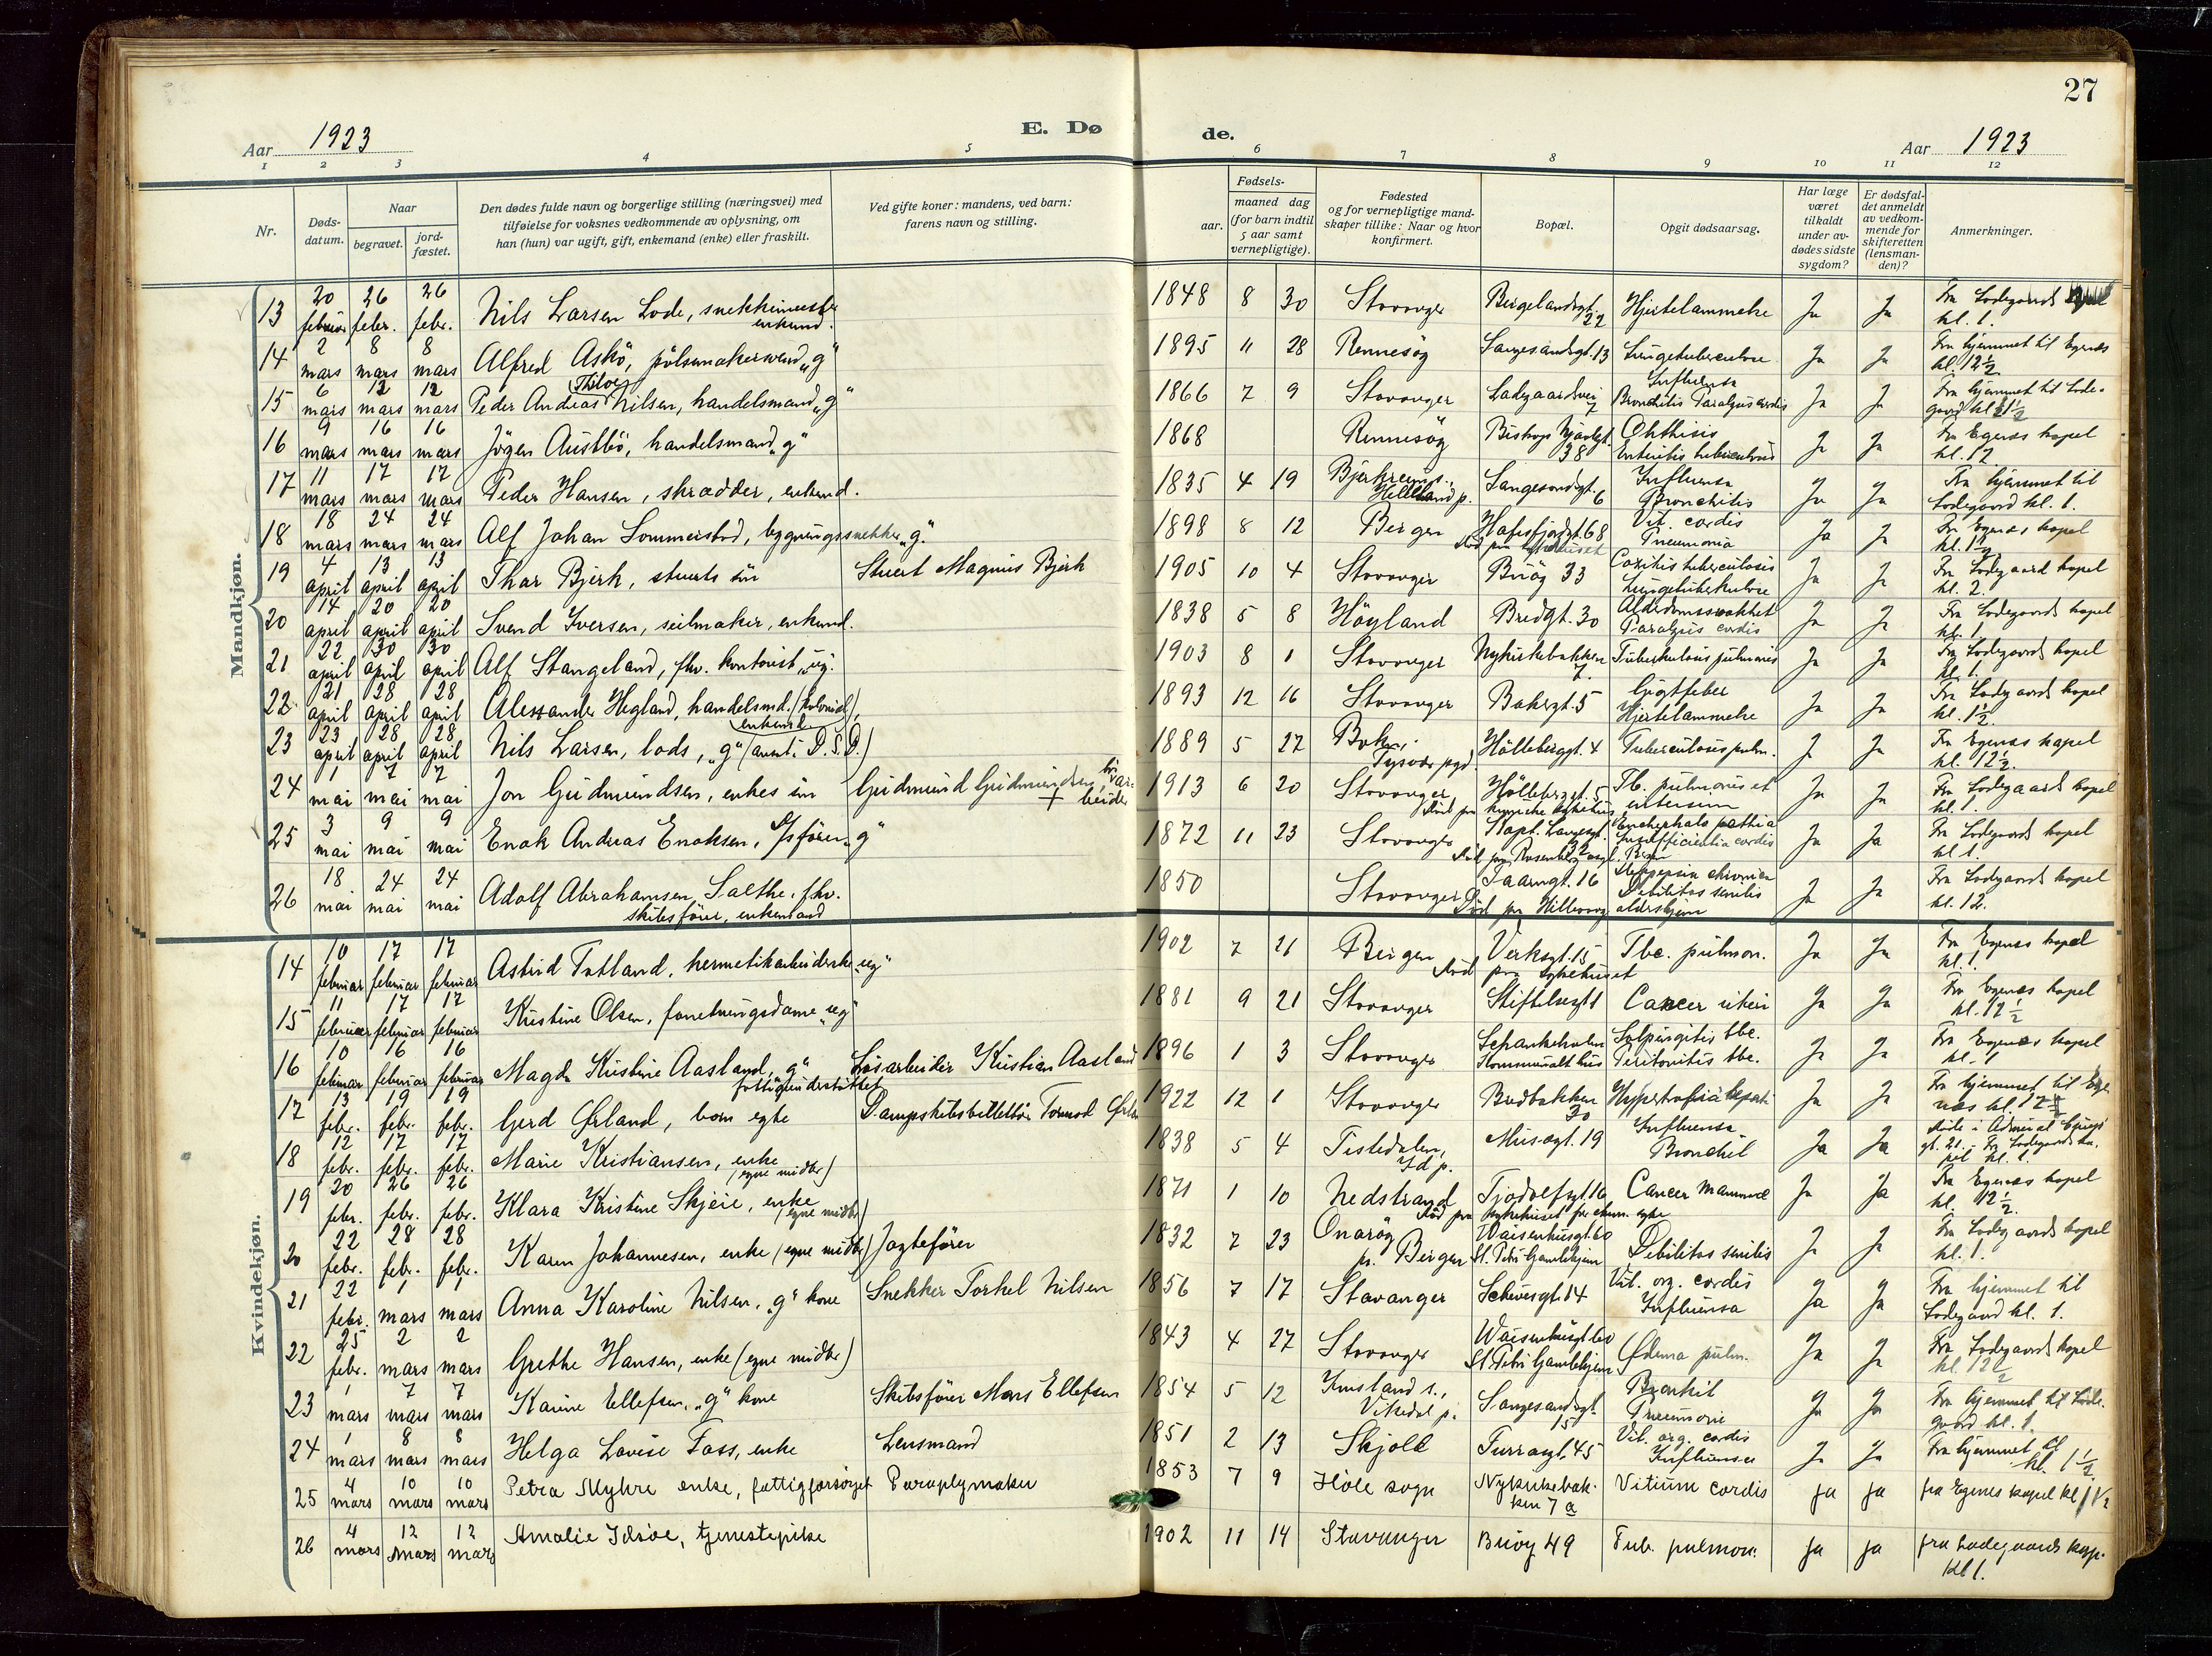 27
Aar 1923
E. Dø
de.
Aar 1923
1 2 3 4 5 6 7 8 9 10 11 12
Nr.
Døds-
datum.
Naar
begravet.
jord-
fæstet.
Den dødes fulde navn og borgerlige stilling (næringsvei) med
tilføielse for voksnes vedkommende av oplysning, om
han (hun) var ugift, gift, enkemand (enke) eller fraskilt.
Ved gifte koner: mandens, ved barn:
farens navn og stilling.
Fødsels-
aar.
maaned dag
(for barn indtil
5 aar samt
vernepligtige).
Fødested
og for vernepligtige mand-
skaper tillike: Naar og hvor
konfirmert.
Bopæl.
Opgit dødsaarsag.
Har læge
været
tilkaldt
under av-
dødes sidste
sygdom?
Er dødsfal-
det anmeldt
av vedkom-
mende for
skifteretten
(lensman-
den)?
Anmerkninger.
Mandkjøn.
13 20 februar 26 febr. 26 febr. Nils Larsen Lode, snekkermester enkemd. 1848 8 30 Stavanger Bergelandsgt. 22 Hjertelammelse Ja Ja Fra Lodegaard kl. 1.
14 2 mars 8 mars 8 mars Alfred Askö, pölsemakersvend „g“ 1895 11 28 Rennesöy Langesandsgt. 13 Lungetuberculose Ja Ja Fra hjemmet til Egenes kl. 12½
15 6 mars 12 mars 12 mars Peder Andreas Thilos Nilsen, handelsmand „g“ 1866 7 9 Stavanger Ladegaardsvei 7 Influensa Bronchitis Paralysis cordis Ja Ja Fra hjemmet til Lode- gaard kl 1½
16 9 mars 16 mars 16 mars Jörgen Austbö, handelsmand „g“ 1868 Rennesöy Biskop Njaalsgt. 38 Phthisis Enteritis tuberculosis Ja Ja Fra Egenes kapel kl. 12
17 11 mars 17 mars 17 mars Peder Hansen, skrædder, enkemd. 1835 4 19 Bjerkreims., Helleland p. Langesandsgt. 6 Influensa Bronchitis Ja Ja Fra hjemmet til Lodegaard kl. 1.
18 18 mars 24 mars 24 mars Alf Johan Sommerstad, bygningssnekker „g“ 1898 8 12 Bergen Hafrsfjordgt. 68 Död paa sykehuset Vit. cordis Pneumonia Ja Ja Fra Egenes kapel kl. 1½
19 4 april 13 april 13 april Thor Bjerk, stuerts sön Stuert Magnus Bjerk 1905 10 4 Stavanger Buöy 33 Coxitis tuberculosis Lungetuberkulose Ja Ja Fra Lodegaard kapel kl. 2.
20 14 april 20 april 20 april Svend Iversen, seilmaker, enkemd. 1838 5 8 Höyland Bredgt. 30 Alderdomssvakhet Paralysis cordis Ja Ja Fra Lodegaards kapel kl. 1
21 22 april 30 april 30 april Alf Stangeland, fhv. kontorist, „ug“. 1903 8 1 Stavanger Nykirkebakken 7. Tuberkulosis pulmonis Ja Ja Fra Lodegaards kapel kl. 1.
22 21 april 28 april 28 april Alexander Hegland, handelsmd. (kolonial), enkemd. 1893 12 16 Stavanger Bakergt. 5 Gigtfeber Hjertelammelse Ja Ja Fra Lodegaards kapel kl. 1½.
23 23 april 28 april 28 april Nils Larsen, lods, „g“ (D.S.D.) 1889 5 27 Bokn, Tysvær pgd. Hölleberggt. 4 Tuberculosis pulm. Ja Ja Fra Egenes kapel kl. 12½.
24 1 mai 7 mai 7 mai Jon Gudmundsen, enkes sön Gudmund Gudmundsen, + 1913 6 20 Stavanger Hölleberggt. 5 Tb. pulmonis et Ja Ja Fra Lodegaards kapel kl. 1.
25 3 mai 9 mai 9 mai Enok Andreas Enoksen, „g“ 1872 11 23 Stavanger Kapt. Langesgt. 32 Encephalopathia Insufficientia cordis Ja Ja Fra Lodegaards kapel kl. 1.
26 18 mai 24 mai 24 mai Adolf Abrahamsen Salthe, fhv. skibsförer, enkemand 1850 Stavanger Taarngt. 16 chronica Debilitas senilis Ja Ja Fra Lodegaards kapel kl. 12.
Kvindekjøn.
14 10 februar 17 februar 17 februar Astrid Totland, hermetikarbeiderske „ug“ 1902 7 21 Bergen Verksgt. 15 Död paa sykehuset Tbc. pulmon. Ja Ja Fra Egenes kapel kl. 1.
15 11 februar 17 februar 17 februar Kristine Olsen, forretningsdame „ug“ 1881 9 21 Stavanger Stiftelsesgt 1 Cancer uteri Ja Ja Fra Egenes kapel kl. 12½
16 10 februar 16 februar 16 februar Magda Kristine Aasland, „g“ fattigunderstöttet Lösarbeider Kristian Aasland 1896 1 3 Stavanger Schankeholm Kommunalt hus Salpingitis tbc. Peritonitis tbc. Ja Ja Fra Egenes kapel kl. 1
17 13 febr. 19 febr. 19 febr. Gerd Ørland, barn egte Dampskibsbilletör Tormod 1922 12 1 Stavanger Bredbakken 30 Ja Ja Fra hjemmet til Ege- næs kl. 12½
18 12 febr. 17 febr. 17 febr. Marie Kristiansen, enke (egne midler) 1838 5 4 Tistedalen, Id p. Musegt. 19 Influensa Bronchit Ja Ja gt. 21. - Fra Lodegaards ka- pel kl. 1.
19 20 febr. 26 febr. 26 febr. Klara Kristine Skjeie, enke (egne midler) 1871 1 10 Nedstrand Tjodolfsgt. 16 Cancer mammæ Ja Ja Fra Egenæs kapel kl. 12½.
20 22 febr. 28 febr. 28 febr. Karen Johannesen, enke (egne midler) Jagtefører 1832 7 23 Onaröy pr. Bergen Waisenhusgt. 60 St. Petri Gamlehjem Debilitas senilis Ja Ja Fra Lodegaards kapel kl. 1.
21 22 febr. 1 mars 1 mars Anna Karoline Nilsen, „g“ kone Snekker Torkel Nilsen 1856 7 17 Stavanger Schivesgt. 14 Vit. org. cordis Influensa Ja Ja Fra hjemmet til Lodegaard kl. 1.
22 25 febr. 2 mars 2 mars Grethe Hansen, enke (egne midler) 1843 4 27 Stavanger Waisenhusgt. 60 St. Petri Gamlehjem Ødema pulm. Ja Ja Fra Lodegaards kapel kl. 12½
23 1 mars 7 mars 7 mars Karine Ellefsen, „g“ kone Skibsförer Mons Ellefsen 1854 5 12 Imsland s., Vikedal p. Langesandsgt. 15 Bronkit Pneumonie Ja Ja Fra hjemmet til Lode- gaard kl. 1.
24 1 mars 8 mars 8 mars Helga Lovise Foss, enke Lensmand 1851 2 13 Skjold Turragt. 45 Vit. org. cordis Influensa Ja Ja Fra hjemmet kl. 1½.
25 4 mars 10 mars 10 mars Petra Myhre enke, fattigforsörget Paraplymaker 1853 7 9 Höle sogn Nykirkebak- ken 7 a Vitium cordis ja ja fra Egenes kapel kl 1½
26 4 mars 12 mars 12 mars Amalie Idsöe, tjenestepike 1902 11 14 Stavanger Buöy 49 Tub. pulmon. ja ja fra Ladegaards kap. kl 1.